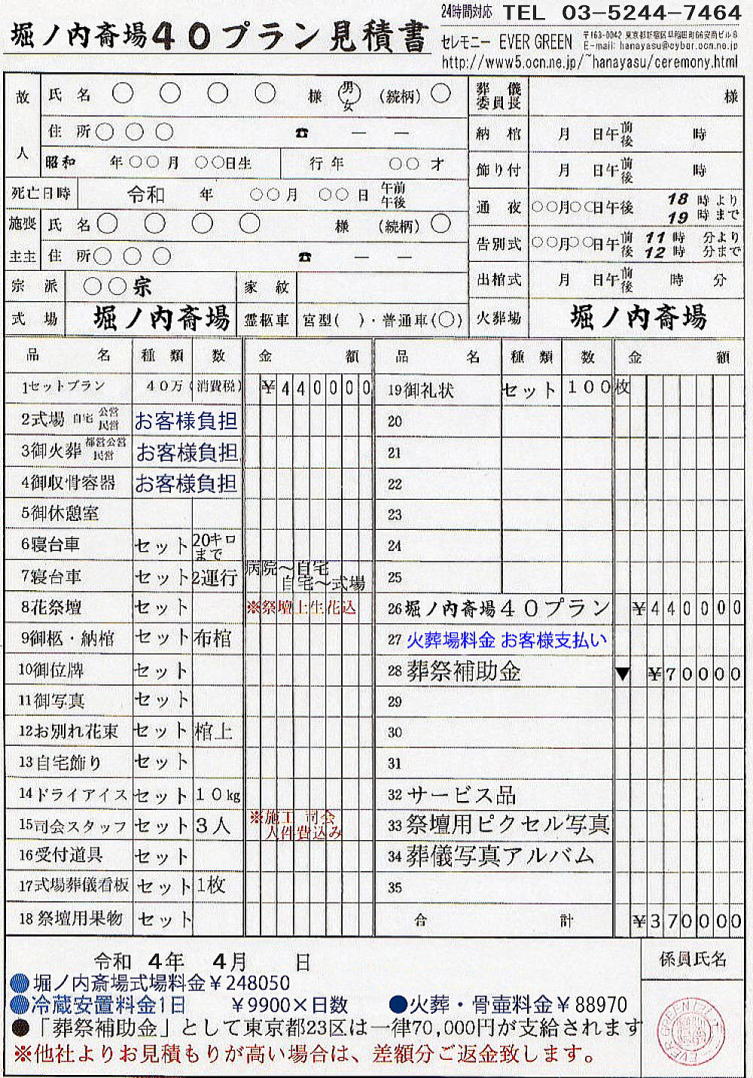 24時間対応 TEL 03-5244-7464
堀ノ内斎場40プラン見積書
セレモニー EVER GREEN 〒163-0042 東京都新宿区早稲田町66安商ビル8
E-mail: hanayasu@cyber.ocn.ne.jp
http://www5.ocn.ne.jp/~hanayasu/ceremony.html
故人 氏名 ○ ○ ○ ○ 様 男女 (続柄) ○
住所 ○ ○ ○ ☎ ― ―
昭和 年○○月 ○○日生 行年 ○○才
死亡日時 令和 年 ○○月 ○○日 午前午後
施喪 氏名 ○ ○ ○ ○ 様 (続柄) ○
主主 住所 ○ ○ ○ ☎ ― ―
宗派 ○○宗 家紋
式場 堀ノ内斎場 霊柩車 宮型( )・普通車(○)
葬儀委員長 様
納棺 月 日午前後 時
飾り付 月 日午前後 時
通夜 ○○月○○日午後 18時より 19時まで
告別式 ○○月○○日午前後 11時 分より 12時 分まで
出棺式 月 日午前後 時 分
火葬場 堀ノ内斎場
品名 種類 数 金額
1セットプラン 40万(消費税) ¥440000
2式場 自宅 公営 民営 お客様負担
3御火葬 都営公営 民営 お客様負担
4御収骨容器 お客様負担
5御休憩室
6寝台車 セット 20キロまで
7寝台車 セット 2運行 病院〜自宅 自宅〜式場
8花祭壇 セット ※祭壇上生花込
9御柩・納棺 セット 布棺
10御位牌 セット
11御写真 セット
12お別れ花束 セット 棺上
13自宅飾り セット
14ドライアイス セット 10kg
15司会スタッフ セット 3人 ※施工 司会 人件費込み
16受付道具 セット
17式場葬儀看板 セット 1枚
18祭壇用果物 セット
品名 種類 数 金額
19御礼状 セット 100枚
20
21
22
23
24
25
26 堀ノ内斎場40プラン ¥440000
27 火葬場料金 お客様支払い
28 葬祭補助金 ▼ ¥70000
29
30
31
32 サービス品
33 祭壇用ピクセル写真
34 葬儀写真アルバム
35
合計 ¥370000
令和 4年 4月 日
係員氏名
●堀ノ内斎場式場料金¥248050
●冷蔵安置料金1日 ¥9900×日数 ●火葬・骨壺料金¥88970
●「葬祭補助金」として東京都23区は一律70,000円が支給されます
※他社よりお見積もりが高い場合は、差額分ご返金致します。
EVER GREEN